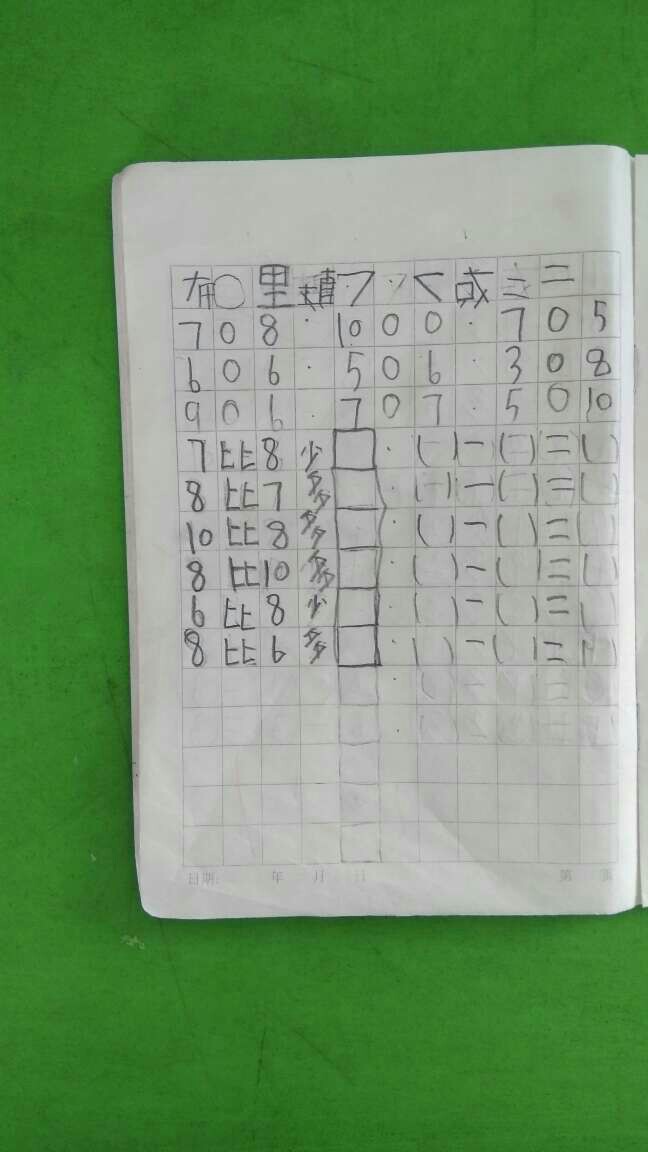 在○里填>、<或者=
7○8 · 10○0 · 7○5
6○6 · 5○6 · 3○8
9○6 7○7 5○10
7比8少□ · ( )-( )=( )
8比7多□ · ( )-( )=( )
10比8多□ · ( )-( )=( )
8比10多□ · ( )-( )=( )
6比8少□ · ( )-( )=( )
8比6多□ · ( )-( )=( )
日期: 年 月 日 第 页